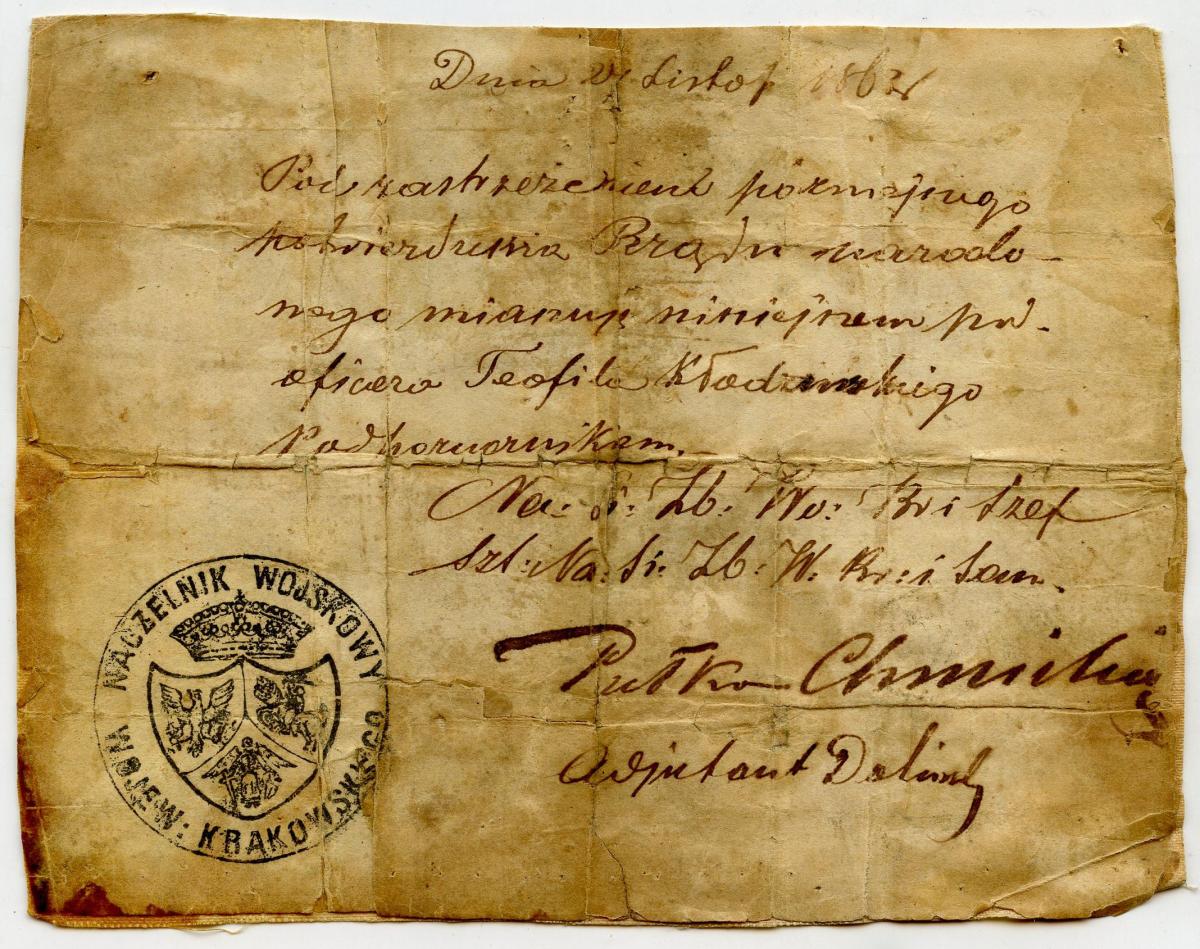 Dnia 21 Listop 1863 r
Pod zastrzeżeniem późniejszego
potwierdzenia Rządu narodo-
wego mianuję niniejszem pod-
oficera Teofila Kłodzinskiego
Podhorucznikem.
Na: si: Zb: Wo: Kr i Szef
Szt: Na: Si: Zb: W. Kr: i San.
Pułko Chmieliń
Adjutant
NACZELNIK WOJSKOWY
WOJEW: KRAKOWSKIEGO